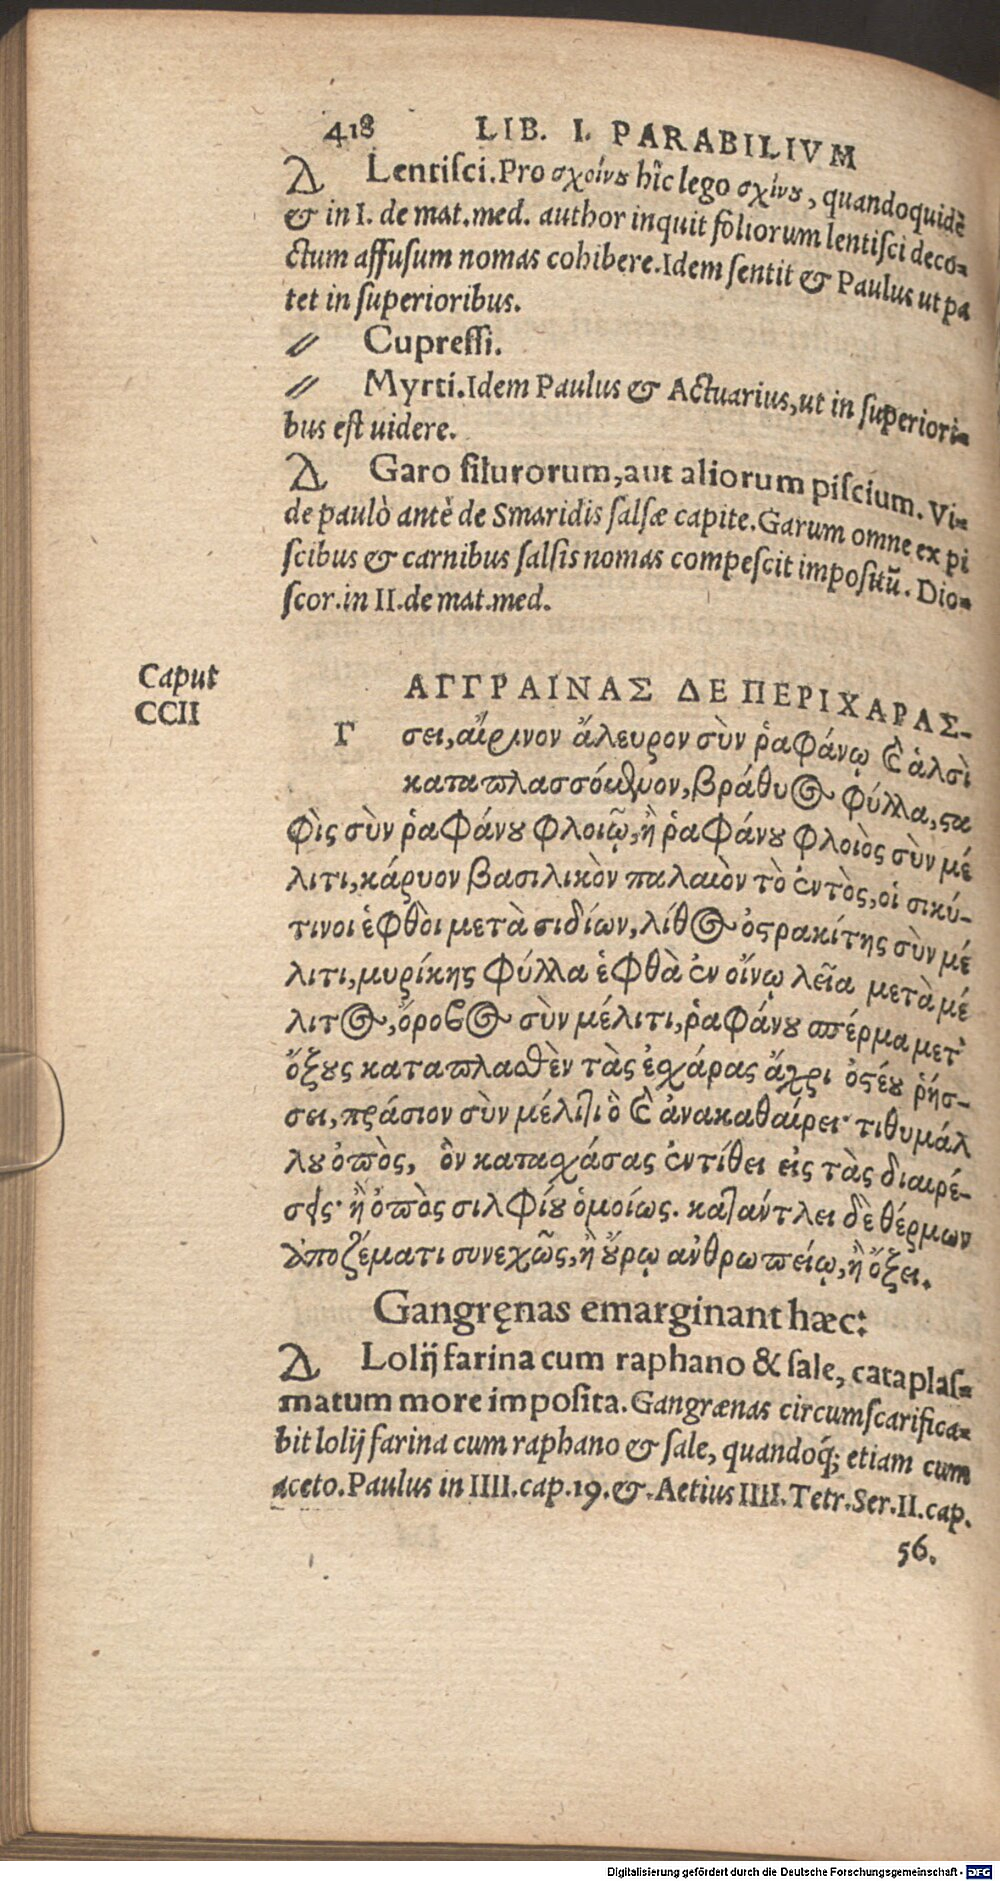 418 LIB. I. PARABILIVM
Δ Lentiſci. Pro σχοίνου hîc lego σχίνου, quandoquidẽ
& in I. de mat.med. author inquit foliorum lentiſci deco-
ctum affuſum nomas cohibere. Idem ſentit & Paulus ut pa
tet in ſuperioribus.
// Cupreſſi.
// Myrti. Idem Paulus & Actuarius, ut in ſuperiori-
bus eſt uidere.
Δ Garo ſilurorum, aut aliorum piſcium. Vi-
de paulò antè de Smaridis ſalſæ capite. Garum omne ex pi
ſcibus & carnibus ſalſis nomas compeſcit impoſitũ. Dio-
ſcor. in II. de mat.med.
Caput
CCII
ΑΓΓΡΑΙΝΑΣ ΔΕ ΠΕΡΙΧΑΡΑΣ-
Γ σει, αἴρινον ἄλευρον σὺν ῥαφάνῳ καὶ ἁλσὶ
καταπλασσόμενον, βράθυος φύλλα, στα
φὶς σὺν ῥαφάνου φλοιῷ, ἢ ῥαφάνου φλοιὸς σὺν μέ
λιτι, κάρυον βασιλικὸν παλαιὸν τὸ ἐντὸς, οἱ σικύ-
τινοι ἑφθοὶ μετὰ σιδίων, λίθος ὀστρακίτης σὺν μέ
λιτι, μυρίκης φύλλα ἑφθὰ ἐν οἴνῳ λεῖα μετὰ μέ
λιτος, ὄροβος σὺν μέλιτι, ῥαφάνου σπέρμα μετ'
ὄξους καταπλασθὲν τὰς ἐσχάρας ἄχρι ὀστέου ῥήσ-
σει, πράσιον σὺν μέλιτι ὃ καὶ ἀνακαθαίρει· τιθυμάλ
λου ὀπὸς, ὃν κατασχάσας ἐντίθει εἰς τὰς διαιρέ-
σεις· ἢ ὀπὸς σιλφίου ὁμοίως. καταντλει δὲ θέρμων
ἀποζέματι συνεχῶς, ἢ οὔρῳ ἀνθρωπείῳ, ἢ ὄξει.
Gangręnas emarginant hæc:
Δ Lolij farina cum raphano & ſale, cataplaſ-
matum more impoſita. Gangrænas circumſcarifica-
bit lolij farina cum raphano & ſale, quandoq́; etiam cum
aceto. Paulus in IIII. cap. 19. &. Aetius IIII. Tetr. Ser. II. cap.
56.
Digitalisierung gefördert durch die Deutsche Forschungsgemeinschaft - DFG